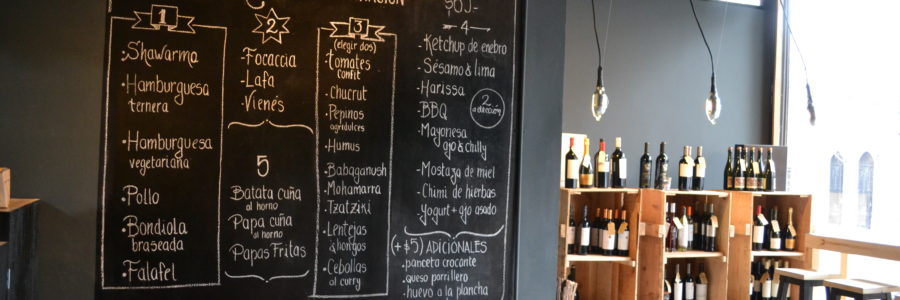 $0J-
1
·Shawarma
·Hamburguesa
ternera
·Hamburguesa
vegetariana
·Pollo
·Bondiola
braseada
·Falafel
2
-Focaccia
-Lafa
-Vienés
5
Batata cuña
al horno
Papa cuña
al horno
Papas Fritas
3
(elegir dos)
tomates
confit
·Chucrut
·Pepinos
agridulces
·Humus
·Babaganush
·Mohamarra
·Tzatziki
·Lentejas
&hongos
·Cebollas
al curry
-4-
·Ketchup de enebro
·Sésamo & lima
·Harissa
·BBQ
·Mayonesa
ajo & chilly
·Mostaza de miel
·Chimi de hierbas
·Yogurt + ajo asado
2
a elección
(+$5) ADICIONALES
·panceta crocante
·queso parrillero
·huevo a la plancha